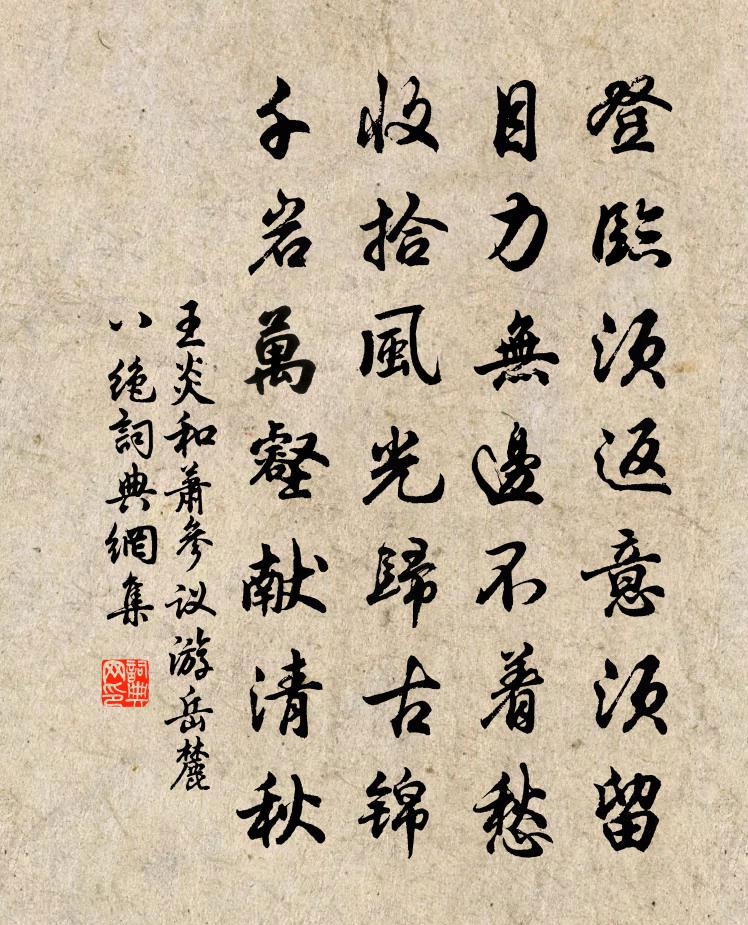 登臨須返意須留
目力無邊不着愁
收拾風光歸古锦
千岩萬壑献清秋
王炎和萧參议游岳麓
八绝詞典網集
詞典网印